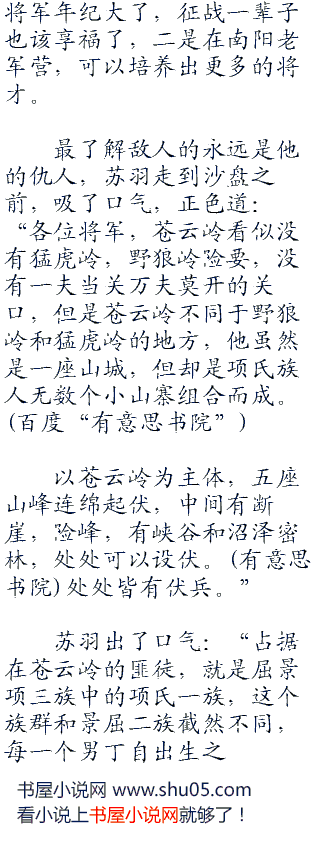 将军年纪大了，征战一辈子
也该享福了，二是在南阳老
军营，可以培养出更多的将
才。
最了解敌人的永远是他
的仇人，苏羽走到沙盘之
前，吸了口气，正色道：
“各位将军，苍云岭看似没
有猛虎岭，野狼岭险要，没
有一夫当关万夫莫开的关
口，但是苍云岭不同于野狼
岭和猛虎岭的地方，他虽然
是一座山城，但却是项氏族
人无数个小山寨组合而成。
(百度“有意思书院”)
以苍云岭为主体，五座
山峰连绵起伏，中间有断
崖，险峰，有峡谷和沼泽密
林，处处可以设伏。(有意思
书院)处处皆有伏兵。”
苏羽出了口气：“占据
在苍云岭的匪徒，就是屈景
项三族中的项氏一族，这个
族群和景屈二族截然不同，
每一个男丁自出生之
书屋小说网 www.shu05.com
看小说上书屋小说网就够了！